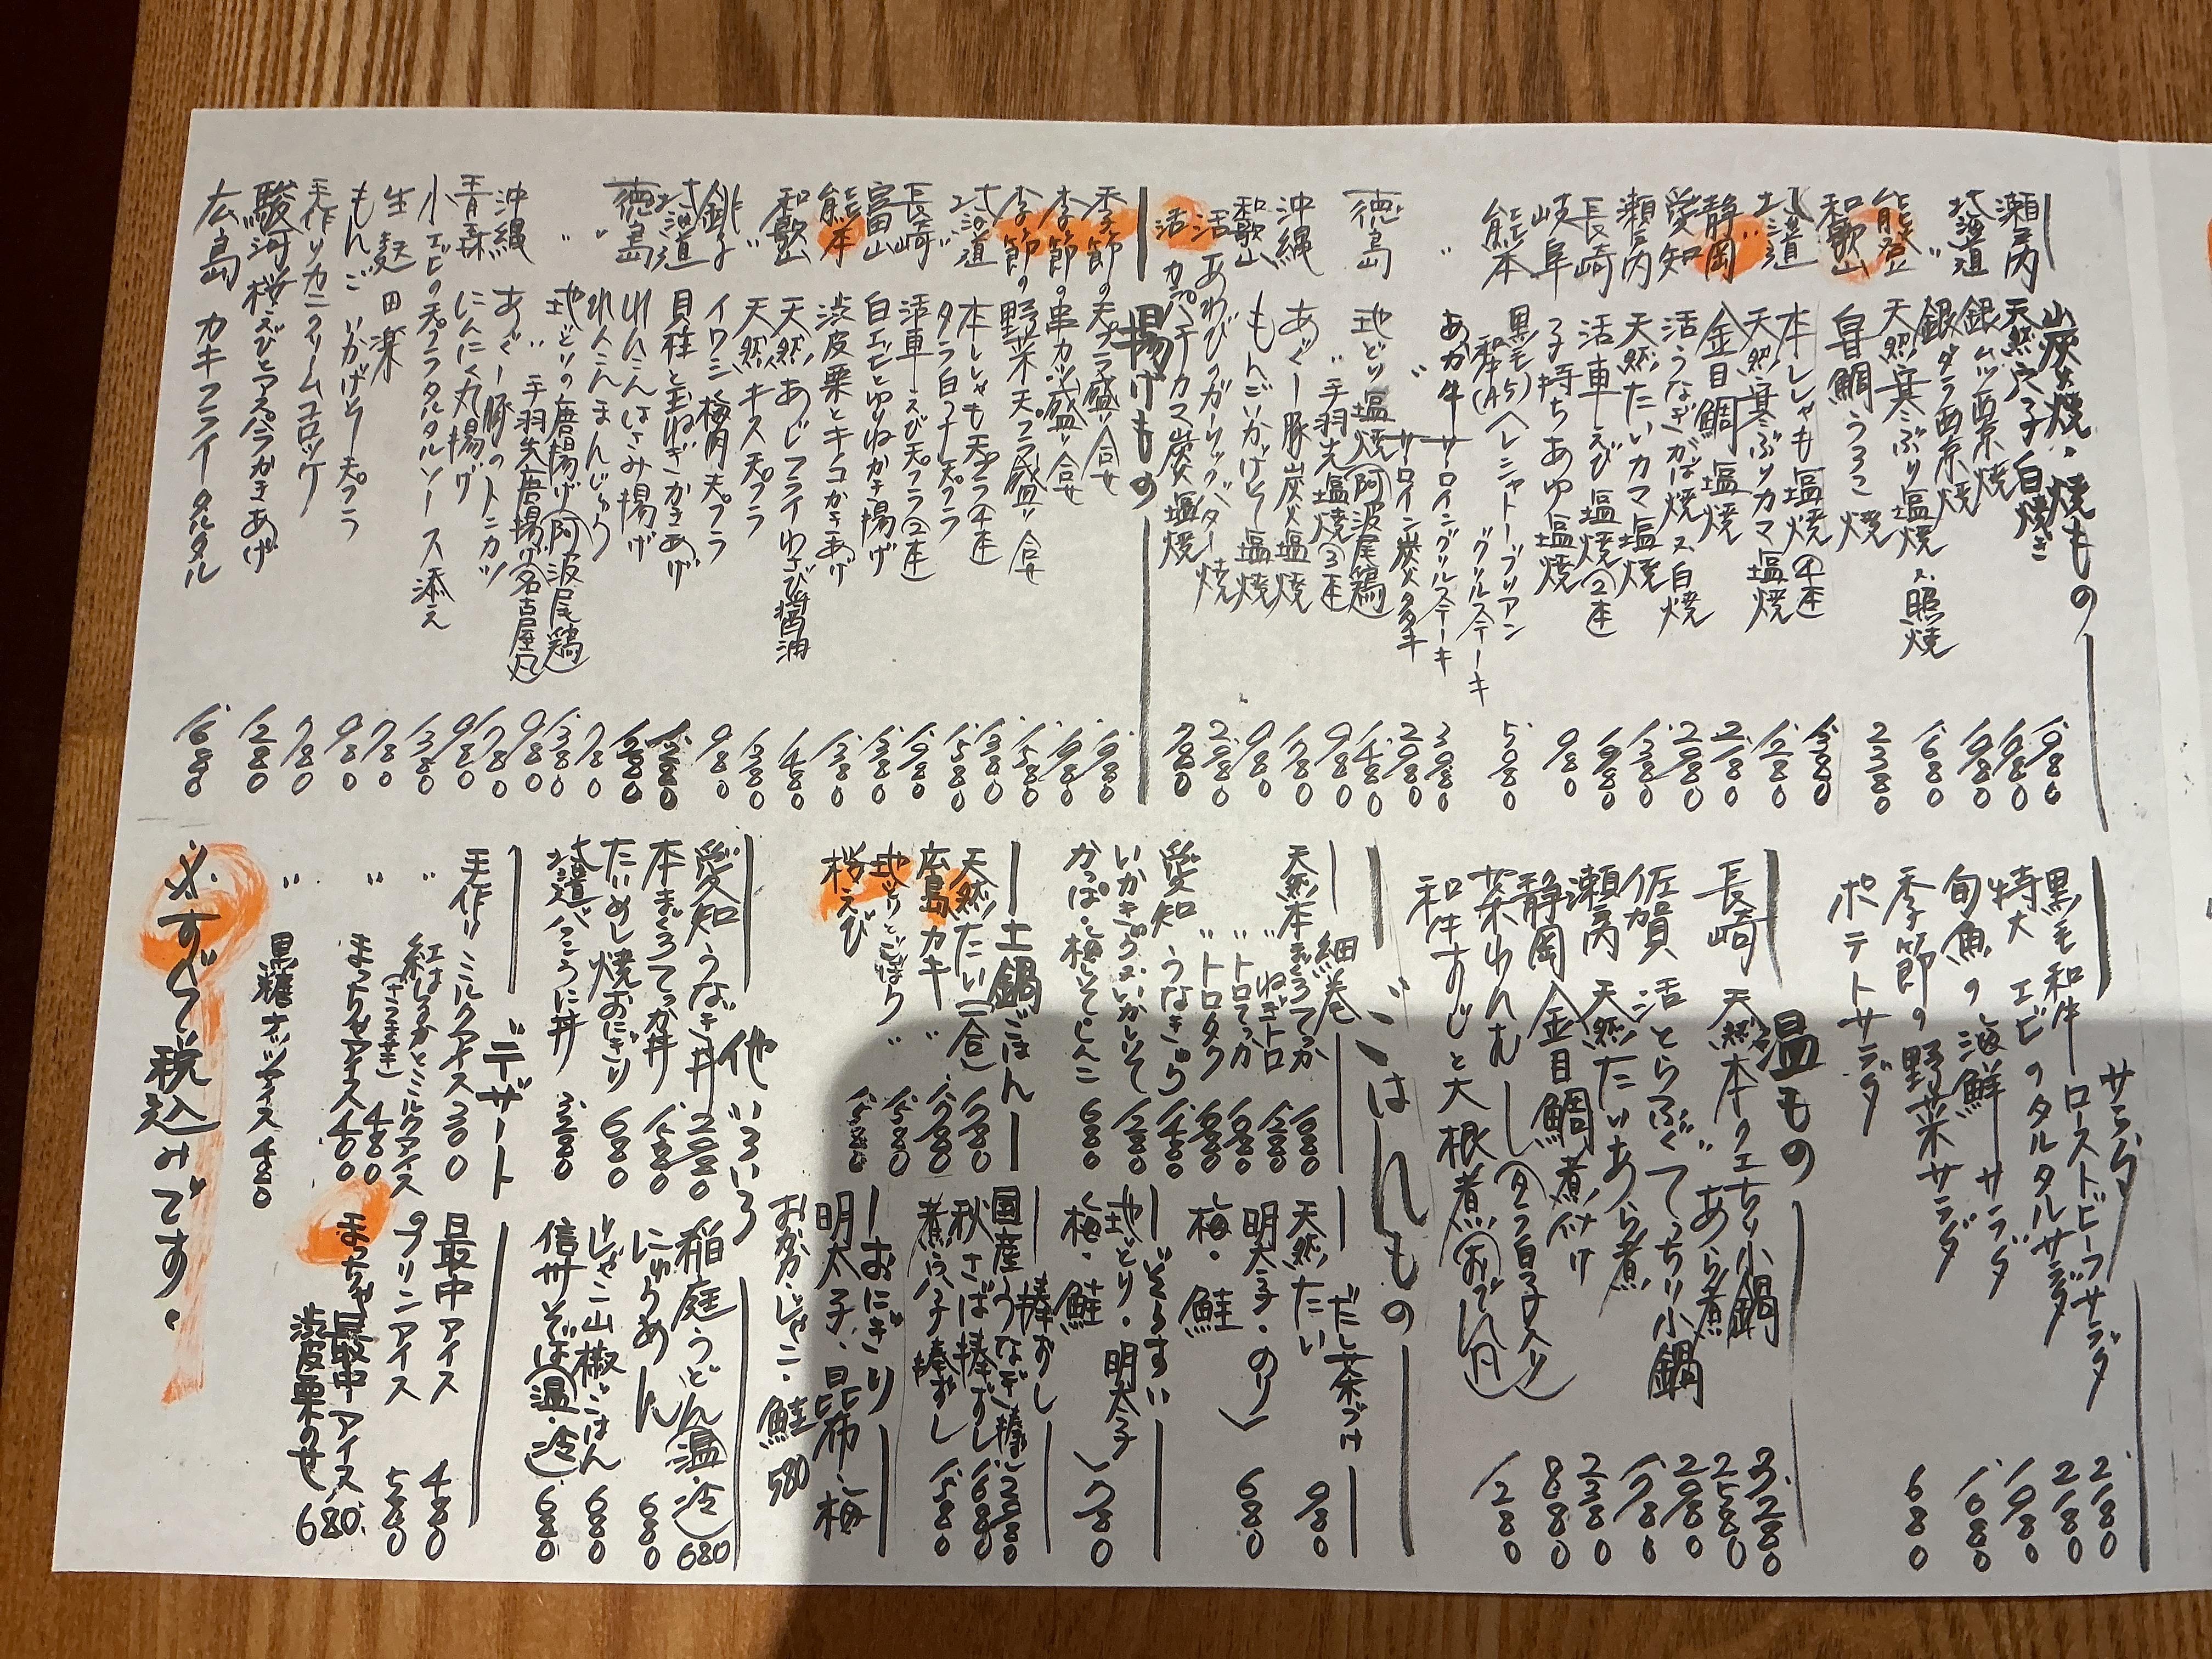 炭火焼・焼もの
瀬戸内 天然穴子白焼き 1,980
〃 銀ムツ西京焼 1,980
北海道 銀ダラ西京焼 1,980
能登 天然寒ぶり塩焼又照焼 1,680
和歌山 甘鯛うろこ焼 2,380
北海道 本ししゃも塩焼(4本) 1,380
〃 天然寒ぶりカマ塩焼 1,280
静岡 金目鯛塩焼 2,180
愛知 活うなぎかば焼又白焼 2,980
瀬戸内 天然たいカマ塩焼 1,380
長崎 活車えび塩焼(2本) 1,980
岐阜 子持ちあゆ塩焼 980
熊本 黒毛和牛(A5)ヘレシャトーブリアングリルステーキ 5,080
〃 あか牛サーロイングリルステーキ 3,980
〃 サーロイン炭火タタキ 2,980
徳島 地どり塩焼(阿波尾鶏) 1,480
〃 手羽先塩焼(3本) 980
沖縄 あぐー豚炭火塩焼 1,780
和歌山 もんごいかげそ塩焼 980
活 あわびのガーリックバター焼 2,980
活 カンパチカマ炭塩焼
揚げもの
季節の天プラ盛り合せ 1,980
季節の串カツ盛り合せ 1,980
季節の野菜天プラ盛り合せ 1,580
北海道 本ししゃも天プラ(4本) 1,380
〃 タラ白子天プラ 1,580
長崎 活車えび天プラ(2本) 1,980
富山 白エビとゆりねかき揚げ 1,380
熊本 渋皮栗とキノコかきあげ 1,380
和歌山 天然あじフライわさび醤油 1,480
〃 天然キス天プラ 1,380
銚子 イワシ梅肉天プラ 980
北海道 貝柱と玉ねぎかきあげ 1,280
徳島 れんこんはさみ揚げ 1,280
〃 れんこんまんじゅう 780
〃 地どりの唐揚げ(阿波尾鶏) 1,380
〃 手羽先唐揚げ(名古屋風) 980
沖縄 あぐー豚のトンカツ 1,780
青森 にんにく丸揚げ 980
小エビの天プラタルタルソース添え 1,380
生麩田楽 780
もんごいかげそ天プラ 980
手作りカニクリームコロッケ 780
駿河桜えびとアスパラかきあげ 1,280
広島 カキフライタルタル 1,680
サラダ
黒毛和牛ローストビーフサラダ 2,180
特大エビのタルタルサラダ 2,180
旬魚の海鮮サラダ 1,980
季節の野菜サラダ 1,080
ポテトサラダ 680
温もの
長崎 天然本クエちり小鍋 3,280
〃 あら煮 2,580
佐賀 活とらふぐてっちり小鍋 2,980
瀬戸内 天然たいあら煮 1,780
静岡 金目鯛煮付け 2,380
茶わんむし(タラ白子入り) 880
和牛すじと大根煮(おでん風) 1,280
ごはんもの
細巻
天然本まぐろてっか 1,680
〃 ねぎトロ 1,280
〃 トロてっか 1,680
〃 トロタク 1,680
愛知 うなきゅう 1,480
いかきゅう・いかしそ 1,280
かっぱ・梅しそ・しんこ 680
だし茶づけ
天然たい 980
明太子・のり
梅・鮭 680
ぞうすい
地どり・明太子
梅・鮭 780
土鍋ごはん
天然たい(一合) 1,780
広島カキ 〃 1,780
地どりとごぼう 〃 1,580
桜えび 1,580
棒ずし
国産うなぎ棒ずし 2,980
秋さば棒ずし 1,680
煮穴子棒ずし 1,580
おにぎり
明太子・昆布・梅
おかか・じゃこ・鮭 580
他いろいろ
愛知うなぎ丼 2,980
本まぐろてっか丼 1,580
たいめし焼おにぎり 680
北海道バフンうに丼 3,280
稲庭うどん(温・冷) 680
にゅうめん 680
じゃこ山椒ごはん 680
信州そば(温・冷) 680
デザート
手作りミルクアイス 300
〃 紅はるかとミルクアイス(さつまイモ) 480
〃 まっちゃアイス 400
〃 黒糖ナッツアイス 480
最中アイス 480
プリンアイス 580
まっちゃ最中アイス渋皮栗のせ 680
※すべて税込みです。